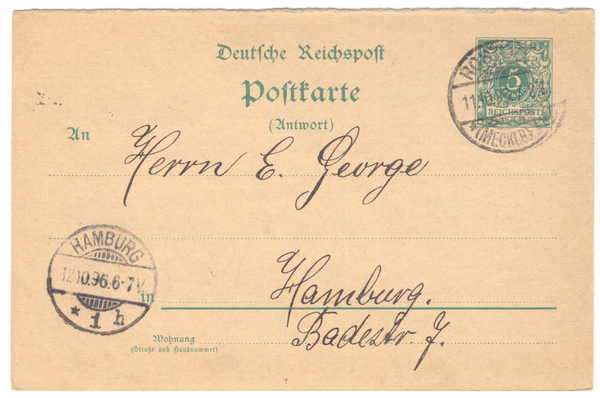 Deutsche Reichspost
Postkarte
(Antwort)
5
REICHSPOST
(MECKLB)
An
Herrn E. George
HAMBURG
12.10.96.6-7V
* 1 h
in
Hamburg.
Badestr. 7.
Wohnung
(Straße und Hausnummer)